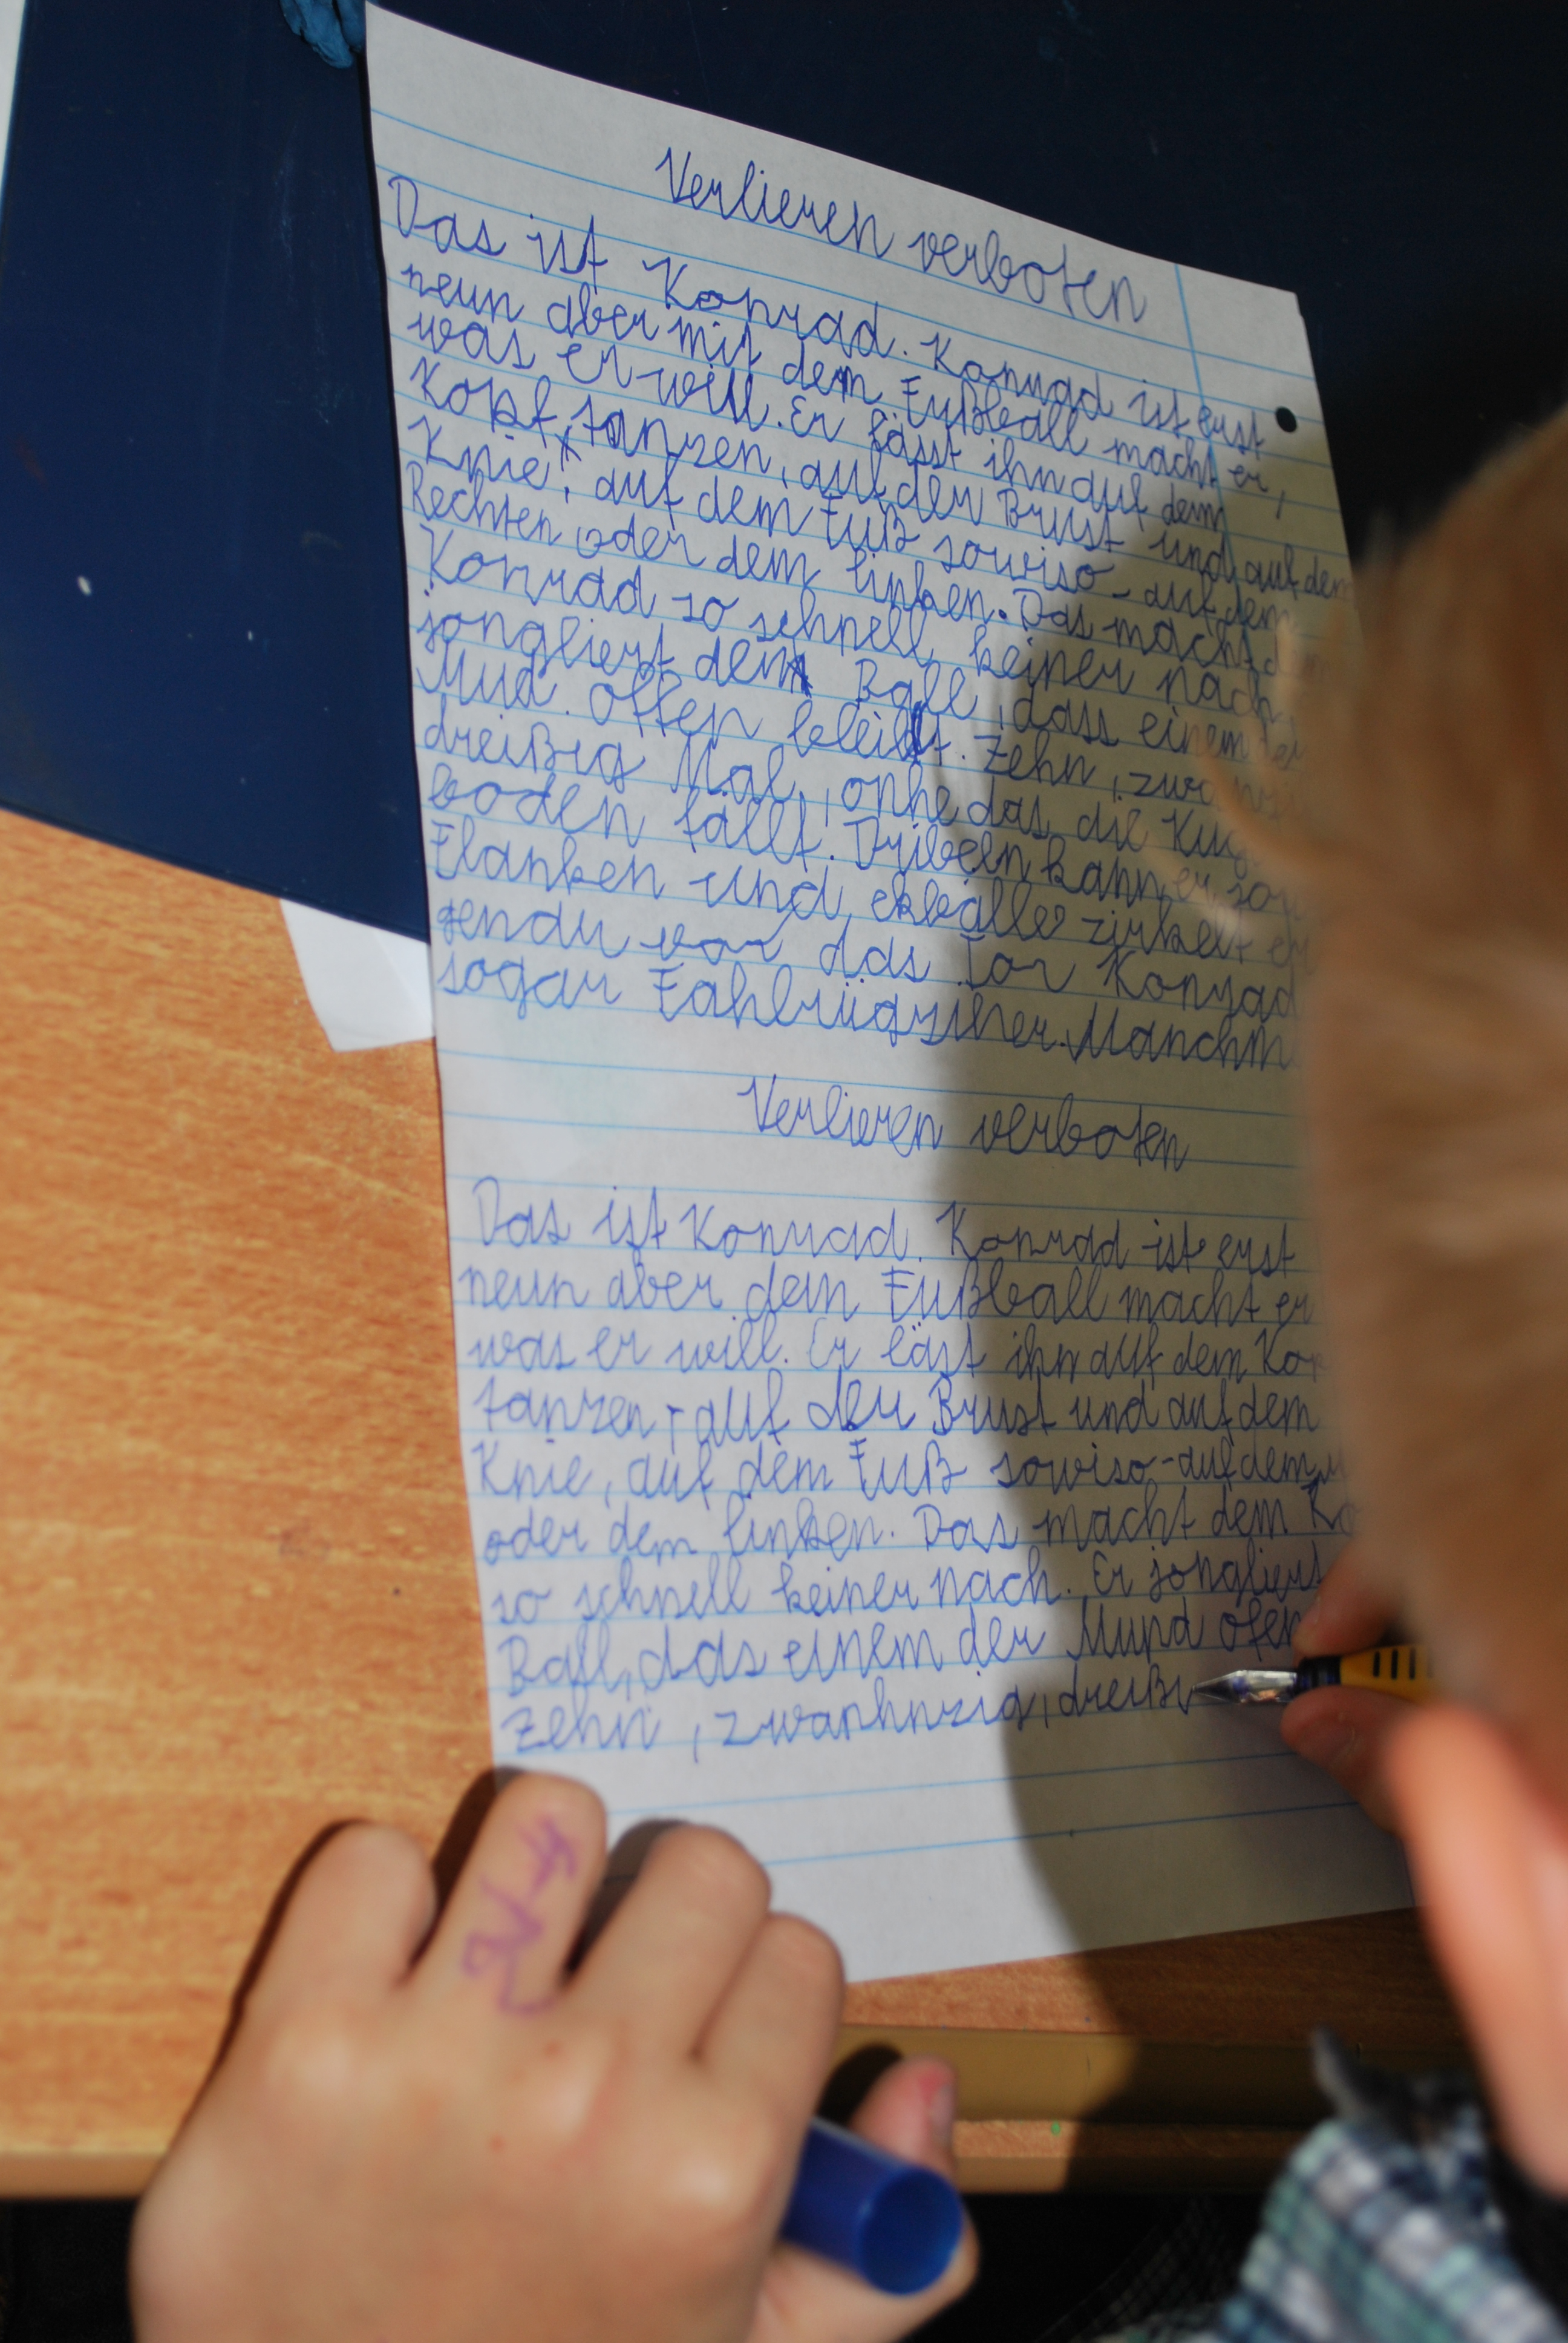 Verlieren verboten
Das ist Konrad. Konrad ist erst
neun aber mit dem Fußball macht er,
was er will. Er lässt ihn auf dem
Kopf tanzen, auf der Brust und auf dem
Knie, auf dem Fuß sowiso - auf dem
Rechten oder dem linken. Das macht
Konrad so schnell keiner nach.
jongliert den Ball, dass einem
Mud. offen bleibt. Zehn,
dreißig Mal, onhe das die
boden fällt. Dribeln kann er
Flanken und ekbälle zirkelt er
vor das Tor Konrad
sogar
Verlieren verboten
Das ist Konrad. Konrad ist erst
neun aber dem Fußball macht er
was er will. Er läst ihn auf dem
tanzen, auf der Brust und auf dem
Knie, auf dem Fuß sowiso - auf dem
oder dem linken. Das macht dem
so schnell keiner nach. Er jongliert
Ball, das einem der Mund ofen
Zehn, zwanhnzig, dreißi